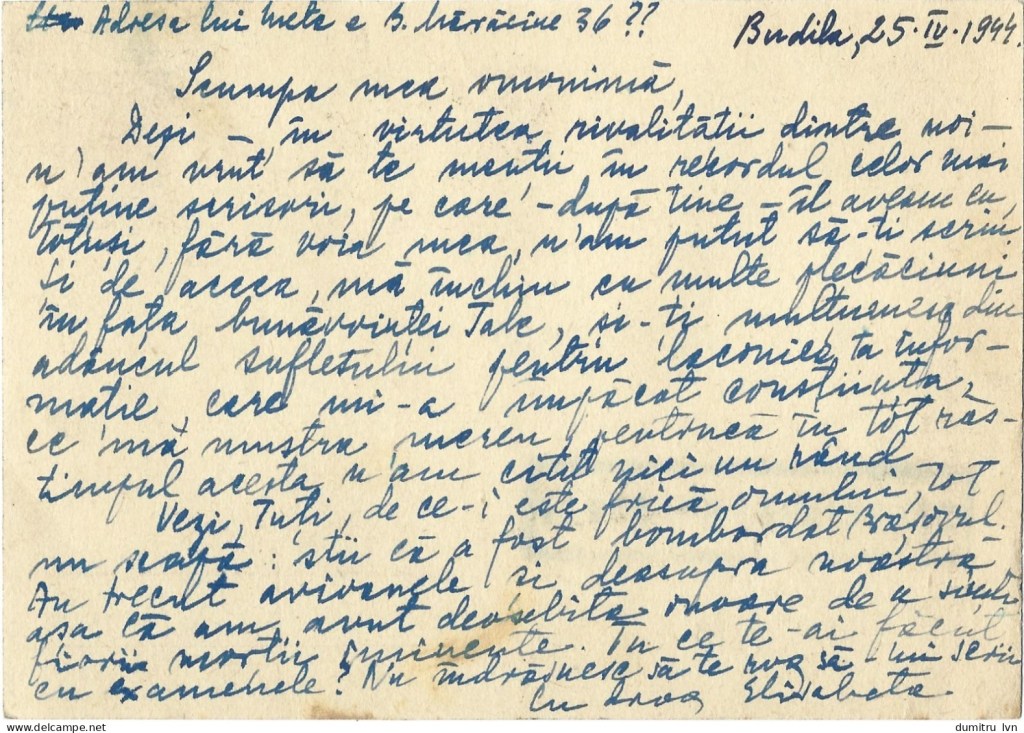 Adresa lui Meta e B. Mărăcine 36??
Budila, 25.IV.1944.
Scumpa mea omonimă,
Deși – în virtutea rivalității dintre noi –
n'am vrut să te mențin în recordul celor mai
puține scrisori, pe care – după tine – îl aveam eu,
totuși, fără voia mea, n'am putut să-ți scriu
Și de aceea, mă închin cu multe plecăciuni
în fața bunăvoinței Tale, și-ți mulțumesc din
adâncul sufletului pentru laconica ta infor-
mație, care mi-a împăcat conștiința,
ce mă mustra mereu, pentrucă în tot răs-
timpul acesta n'am citit nici un rând
Vezi, Tuți, de ce-i este frică omului, tot
nu scapă: știi că a fost bombardat Brașovul.
Au trecut avioanele și deasupra noastră
așa că am avut deosebita onoare de a simți
fiorii morții iminente. Tu ce te-ai făcut
cu examenele? Nu îndrăsnesc să te rog să-mi scrii
Cu drag Elisabeta.
dumitru_lvn